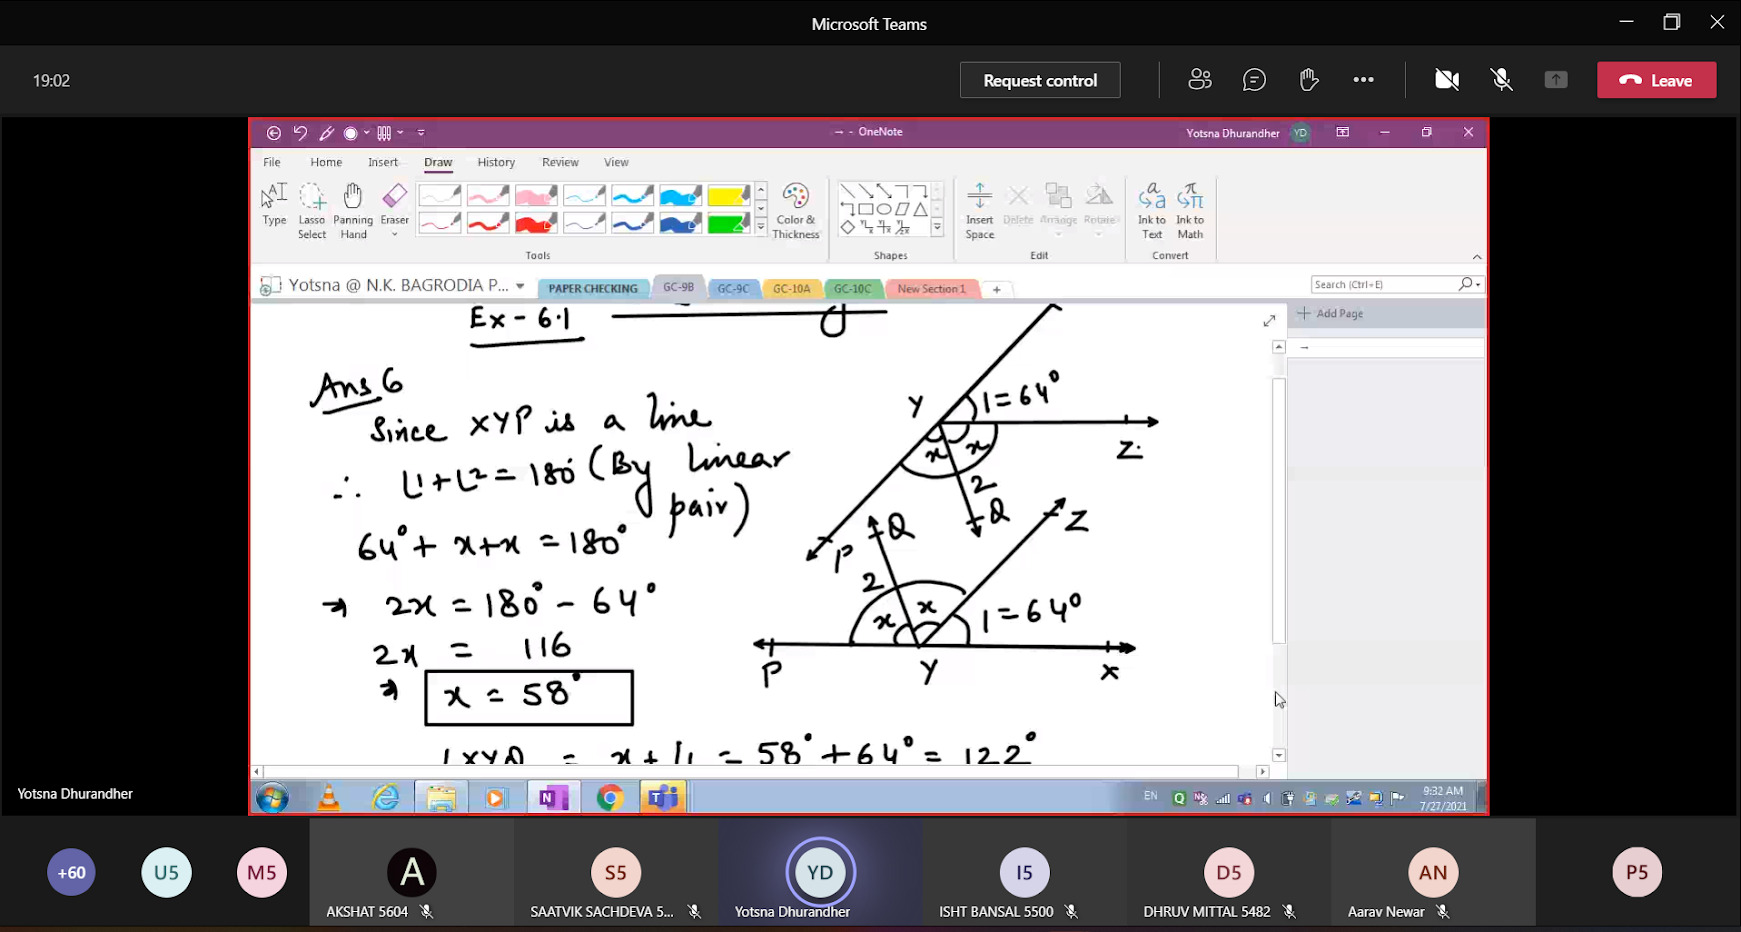 Microsoft Teams
19:02
Request control
Leave
→ - OneNote
Yotsna Dhurandher YD
File Home Insert Draw History Review View
Type
Lasso Select
Panning Hand
Eraser
Color & Thickness
Insert Space
Delete
Arrange
Rotate
Ink to Text
Ink to Math
Tools
Shapes
Edit
Convert
Yotsna @ N.K. BAGRODIA P...
PAPER CHECKING
GC-9B
GC-9C
GC-10A
GC-10C
New Section 1
Search (Ctrl+E)
Add Page
Ex - 6.1
Ans 6
Since XYP is a line
∴ ∠1+∠2 = 180° (By linear
pair)
64° + x+x = 180°
→ 2x = 180° - 64°
2x = 116
→ x = 58°
∠XYQ = x + ∠1 = 58° + 64° = 122°
Y
1 = 64°
x
x
Z
2
Q
P
Q
Z
2
x
x
1 = 64°
P
Y
X
EN
9:32 AM
7/27/2021
Yotsna Dhurandher
+60
U5
M5
A
AKSHAT 5604
S5
SAATVIK SACHDEVA 5...
YD
Yotsna Dhurandher
I5
ISHT BANSAL 5500
D5
DHRUV MITTAL 5482
AN
Aarav Newar
P5